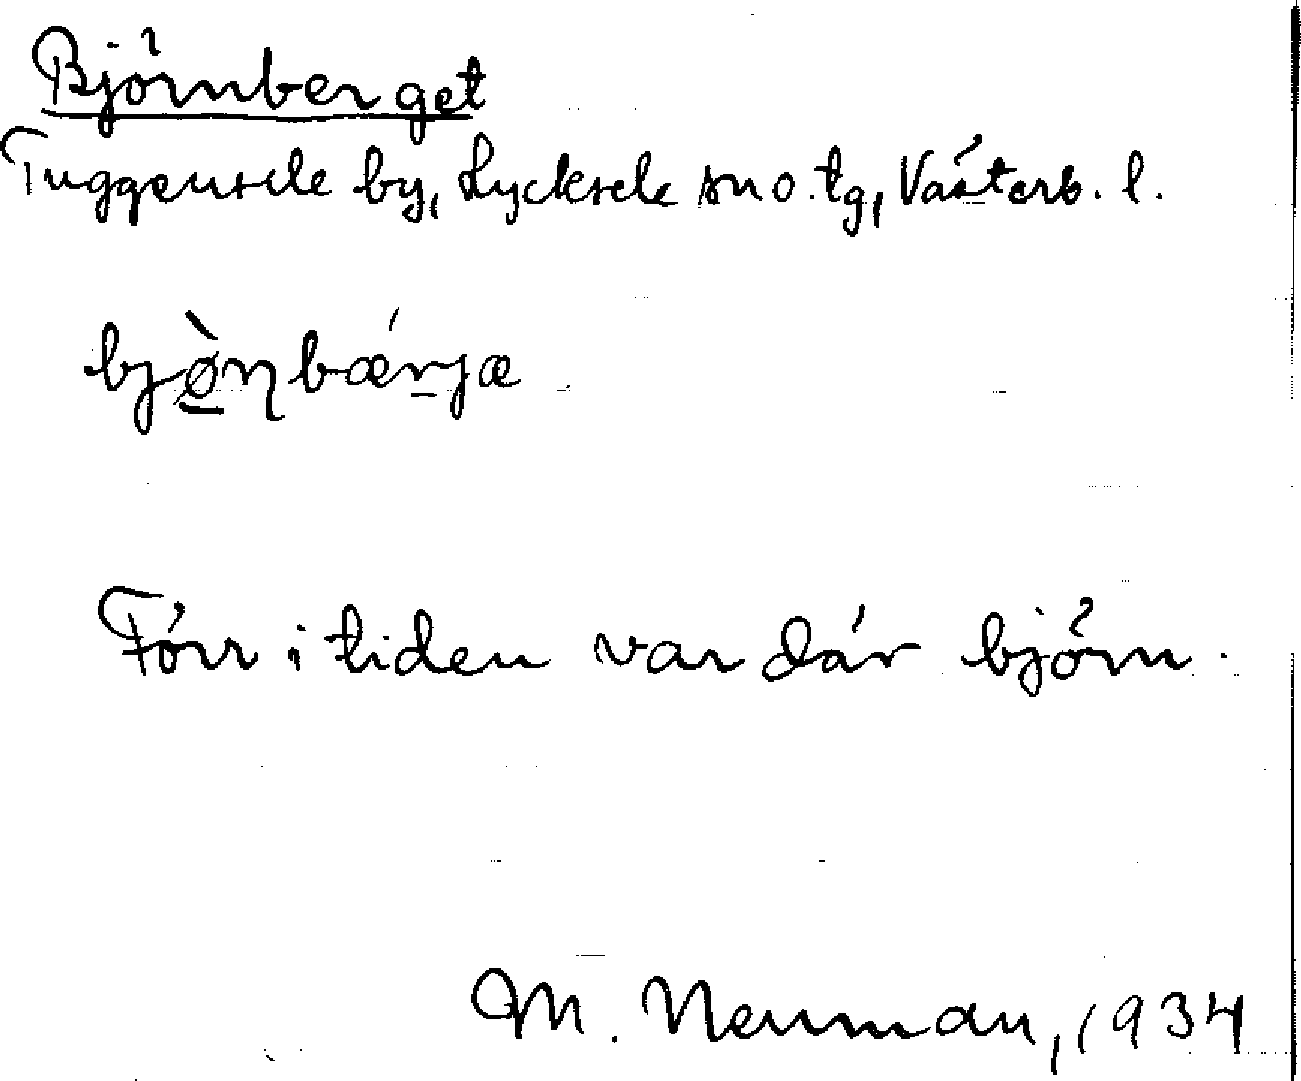 Björnberget
Tuggensele by, Lycksele sn o. tg, Västerb. l.
bjø̀ṇbǽrjæ
Förr i tiden var där björn.
M. Neuman, 1934